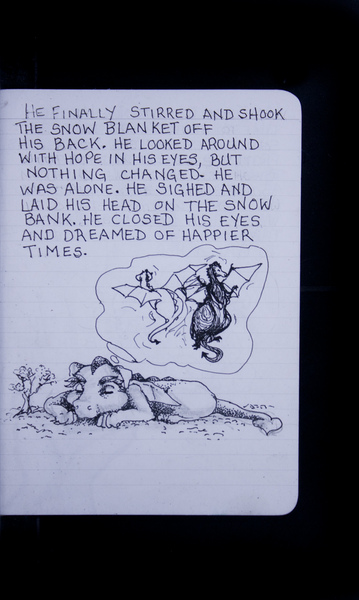 HE FINALLY STIRRED AND SHOOK
THE SNOW BLANKET OFF
HIS BACK. HE LOOKED AROUND
WITH HOPE IN HIS EYES, BUT
NOTHING CHANGED. HE
WAS ALONE. HE SIGHED AND
LAID HIS HEAD ON THE SNOW
BANK. HE CLOSED HIS EYES
AND DREAMED OF HAPPIER
TIMES.